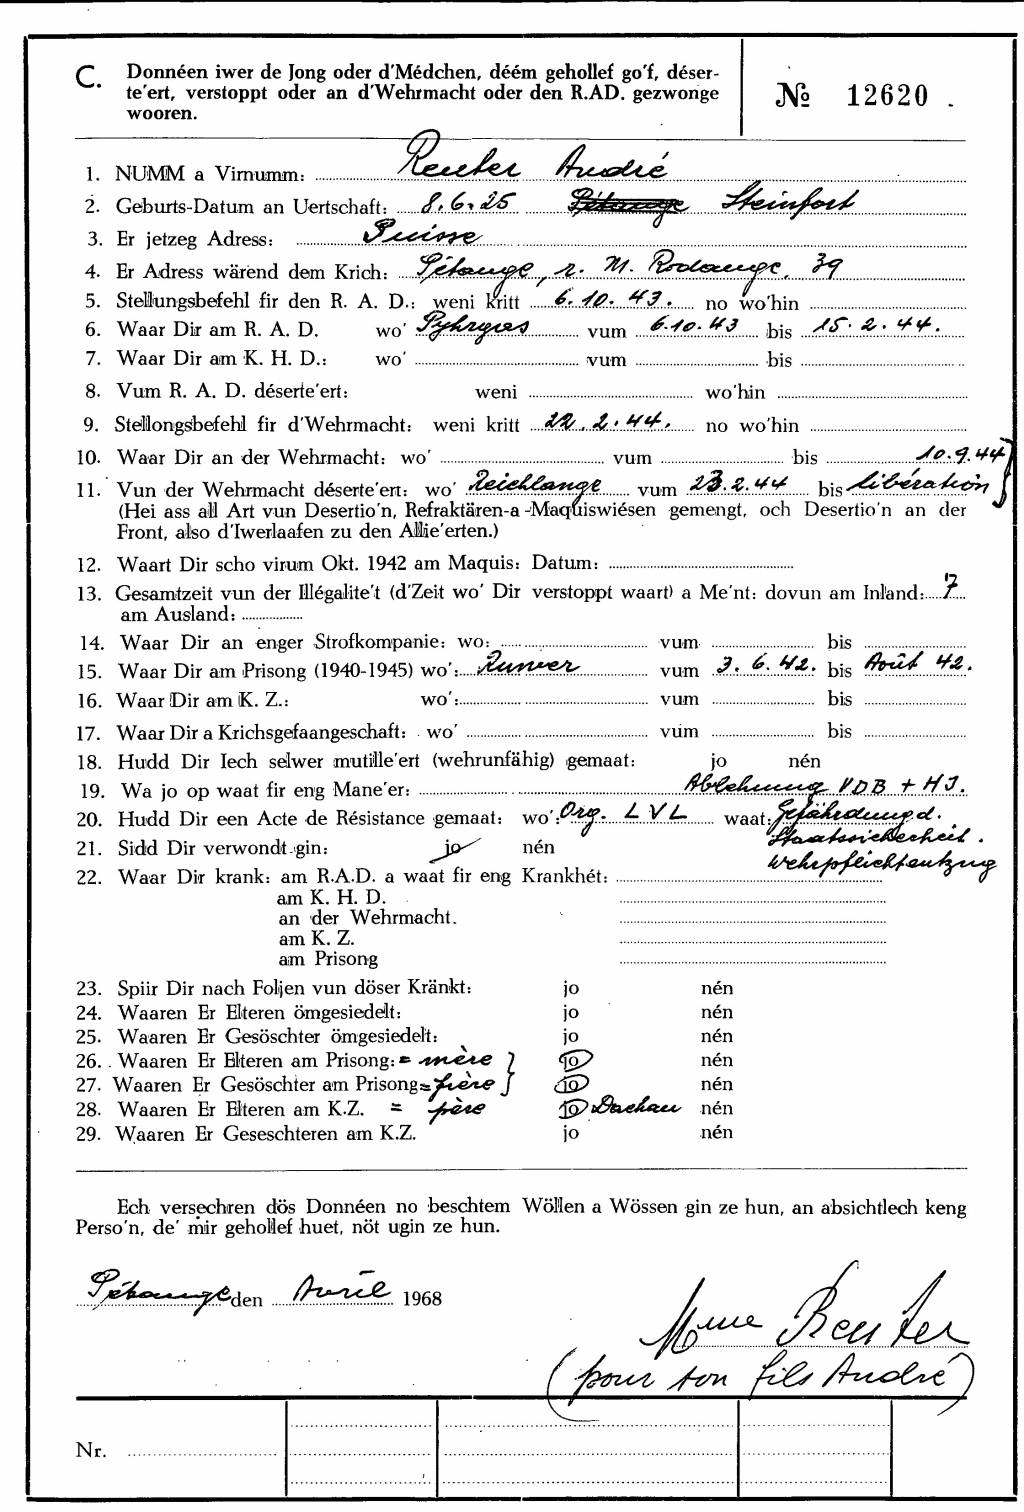 C. Donnéen iwer de Jong oder d'Médchen, déém gehollef go'f, déser-
te'ert, verstoppt oder an d'Wehrmacht oder den R.AD. gezwonge
wooren.
№ 12620
1. NUMM a Virnumm: Reuter André
2. Geburts-Datum an Uertschaft: 8.6.25 Pétange Steinfort
3. Er jetzeg Adress: Suisse
4. Er Adress wärend dem Krich: Pétange, r. M. Rodange, 39
5. Stellungsbefehl fir den R. A. D.: weni kritt 6.10.43. no wo'hin
6. Waar Dir am R. A. D. wo' vum 6.10.43 bis 15.2.44.
7. Waar Dir am K. H. D.: wo' vum bis
8. Vum R. A. D. déserte'ert: weni wo'hin
9. Stellongsbefehl fir d'Wehrmacht: weni kritt 22.2.44. no wo'hin
10. Waar Dir an der Wehrmacht: wo' vum bis 10.9.44
11. Vun der Wehrmacht déserte'ert: wo' Reichlange vum 23.2.44 bis libération
(Hei ass all Art vun Desertio'n, Refraktären-a-Maquiswiésen gemengt, och Desertio'n an der
Front, also d'Iwerlaafen zu den Allie'erten.)
12. Waart Dir scho virum Okt. 1942 am Maquis: Datum:
13. Gesamtzeit vun der Illégalite't (d'Zeit wo' Dir verstoppt waart) a Me'nt: dovun am Inland: 7
am Ausland:
14. Waar Dir an enger Strofkompanie: wo: vum bis
15. Waar Dir am Prisong (1940-1945) wo': vum 3.6.42. bis Août 42.
16. Waar Dir am K. Z.: wo': vum bis
17. Waar Dir a Krichsgefaangeschaft: wo' vum bis
18. Hudd Dir Iech selwer mutille'ert (wehrunfähig) gemaat: jo nén
19. Wa jo op waat fir eng Mane'er: Ablehnung VDB + HJ.
20. Hudd Dir een Acte de Résistance gemaat: wo': Org. LVL waat: Gefährdung d.
Staatssicherheit.
21. Sidd Dir verwondt gin: jo nén
Wehrpflichtentzug
22. Waar Dir krank: am R.A.D. a waat fir eng Krankhét:
am K. H. D.
an der Wehrmacht.
am K. Z.
am Prisong
23. Spiir Dir nach Foljen vun döser Kränkt: jo nén
24. Waaren Er Elteren ömgesiedelt: jo nén
25. Waaren Er Gesöschter ömgesiedelt: jo nén
26. Waaren Er Elteren am Prisong: = mère } jo nén
27. Waaren Er Gesöschter am Prisong = frère } jo nén
28. Waaren Er Elteren am K.Z. = père jo Dachau nén
29. Waaren Er Geseschteren am K.Z. jo nén
Ech versechren dös Donnéen no beschtem Wöllen a Wössen gin ze hun, an absichtlech keng
Perso'n, de' mir gehollef huet, nöt ugin ze hun.
Pétange den Avril 1968
Mme Reuter
(pour son fils André)
Nr.